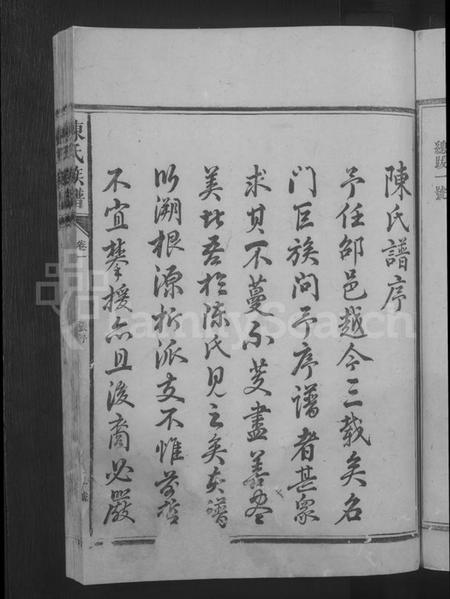 總跋一號
陳氏譜序
予任邵邑越今三載矣名
門巨族問予序譜者甚衆
求其不蔓不支盡善盡
美此吾於陳氏見之矣夫譜
以溯根源析派支不惟
不宜攀援亦且後裔必嚴
陳氏族譜
卷一
FamilySearch